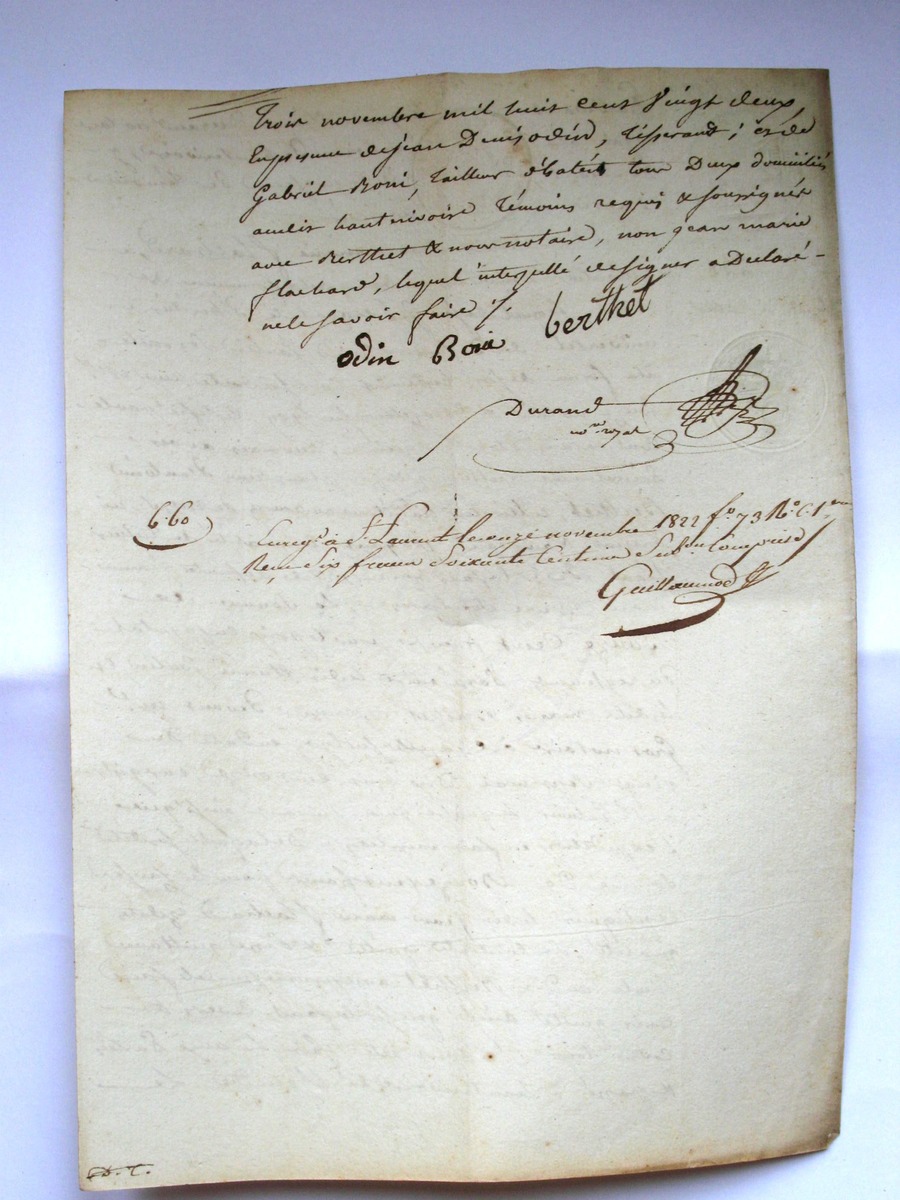 Trois novembre mil huit cent vingt deux,
En presence de jean Denis odin, Tisserand ; et de
Gabriel Boni, Tailleur d'habits tous Deux domiciliés
audit hautrivoire Témoins requis & soussignés
avec Berthet & nous notaire, non jean marie
flachard, lequel interpellé de signer a Declaré -
ne le savoir faire ·/.
odin Boni berthet
Durand
no.re royal
6.60
Enreg.é à S.t Laurent le onze novembre 1822 f.o 73 R.o C. 1.ere
Reçu Six francs Soixante Centimes Sub.on Comprise
Guillaumod
D. T.